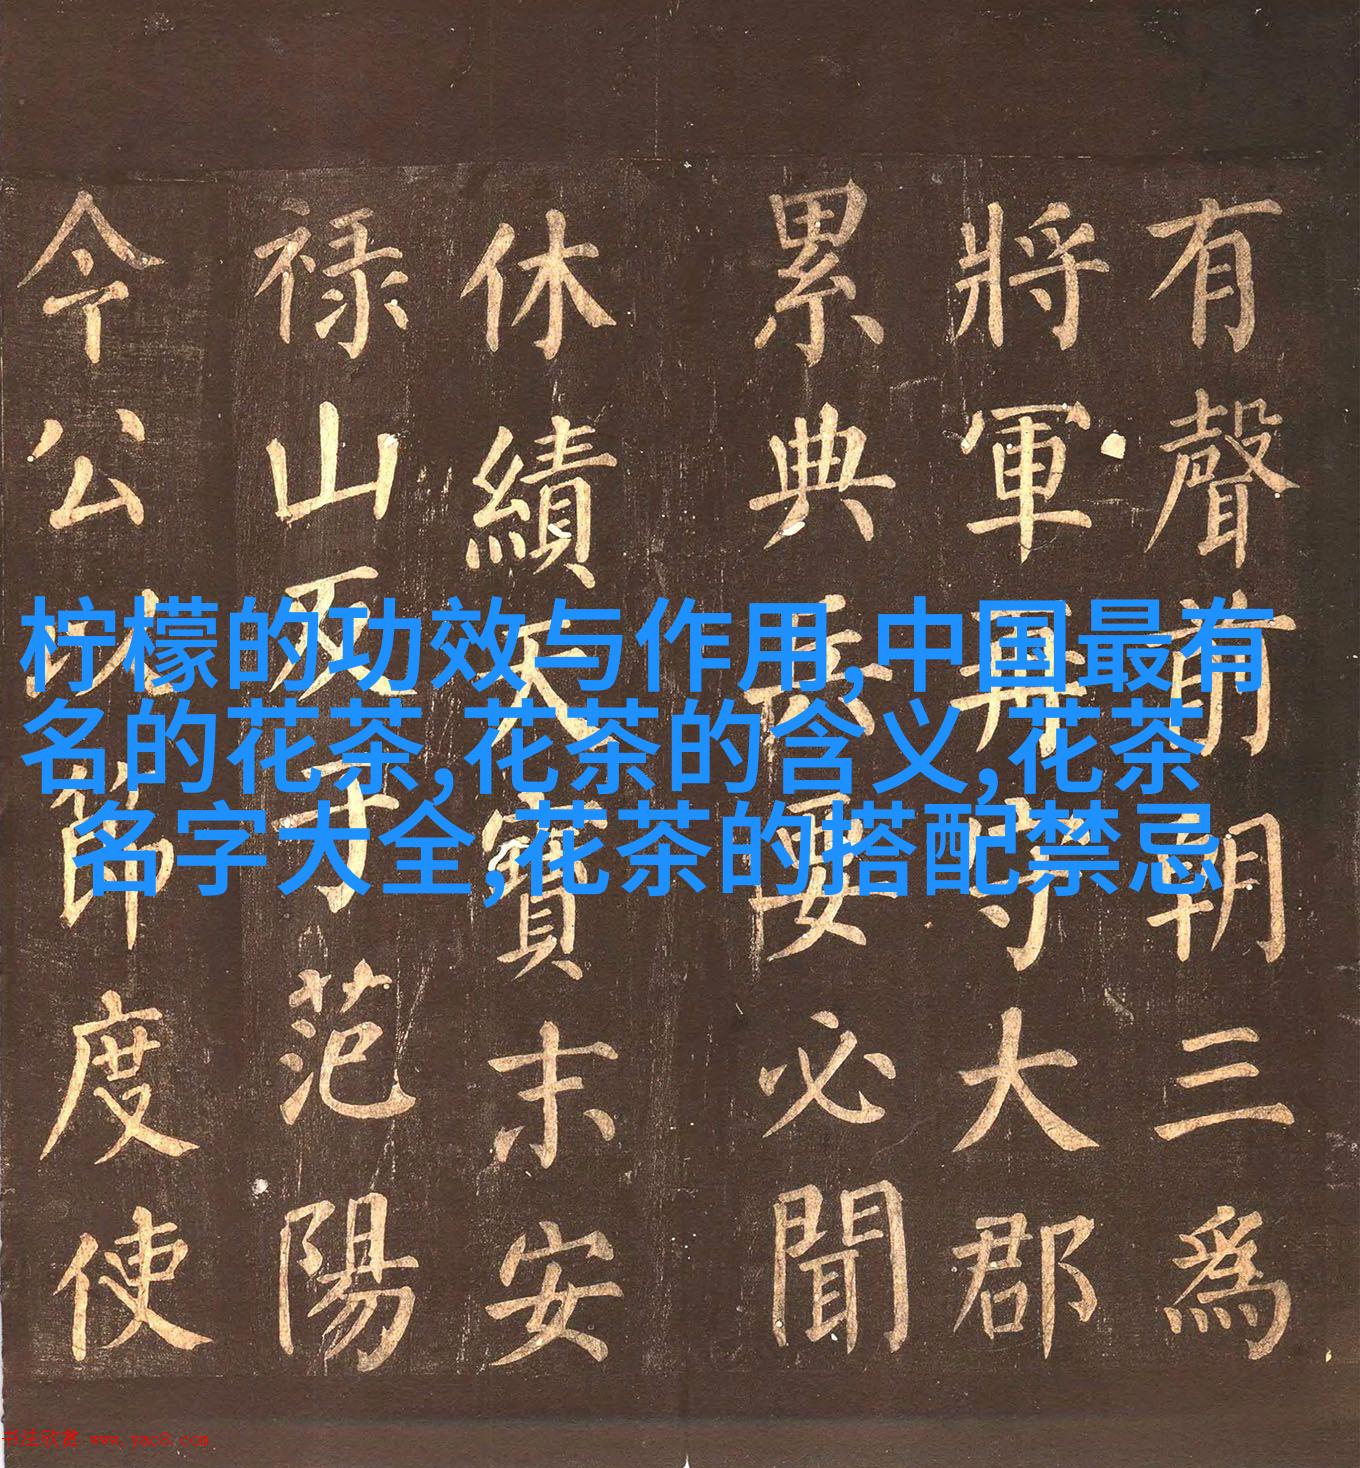 柠檬的功效与作用,中国最有
名的花茶,花茶的含义,花茶
名字大全,花茶的搭配禁忌
有聲前朝三為
將軍再守大郡
累典兵要必聞
休績天寶末安
禄山反于范陽
今公以節度使
书法欣赏 www.yac8.com